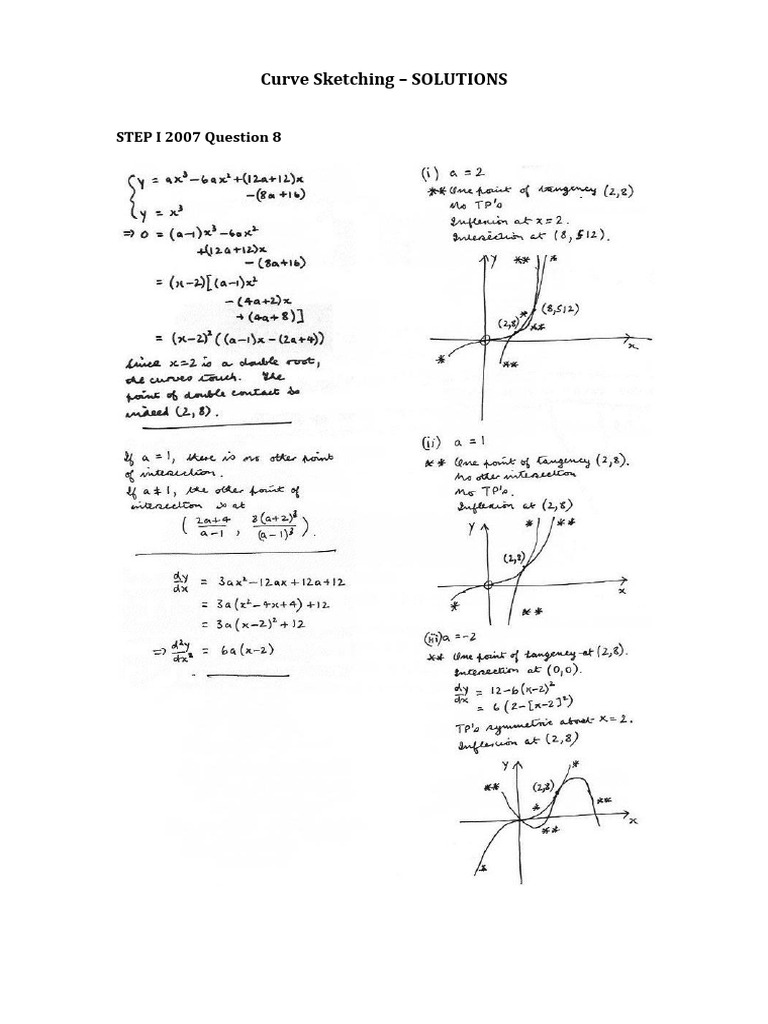 Curve Sketching – SOLUTIONS
STEP I 2007 Question 8
y = ax³ – 6ax² + (12a+12)x
– (8a+16)
y = x³
⇒ 0 = (a–1)x³ – 6ax²
+ (12a+12)x
– (8a+16)
= (x–2)[(a–1)x²
– (4a+2)x
+ (4a+8)]
= (x–2)²((a–1)x – (2a+4))
Since x=2 is a double root,
the curves touch. The
point of double contact is
indeed (2,8).
If a = 1, there is no other point
of intersection.
If a ≠ 1, the other point of
intersection is at
( 2a+4 / a–1 , 8(a+2)³ / (a–1)³ ).
dy/dx = 3ax² – 12ax + 12a + 12
= 3a(x² – 4x + 4) + 12
= 3a(x–2)² + 12
⇒ d²y/dx² = 6a(x–2)
(i) a = 2
** One point of tangency (2,8)
No TP's
Inflexion at x = 2.
Intersection at (8, 512).
y
**
*
(8,512)
(2,8)
*
**
x
*
**
(ii) a = 1
** One point of tangency (2,8).
No other intersection
No TP's.
Inflexion at (2,8)
y
*
**
(2,8)
x
*
**
(iii) a = -2
** One point of tangency at (2,8).
Intersection at (0,0).
dy/dx = 12 – 6(x–2)²
= 6(2 – [x–2]²)
TP's symmetric about x = 2.
Inflexion at (2,8)
y
*
**
(2,8)
*
**
**
x
*